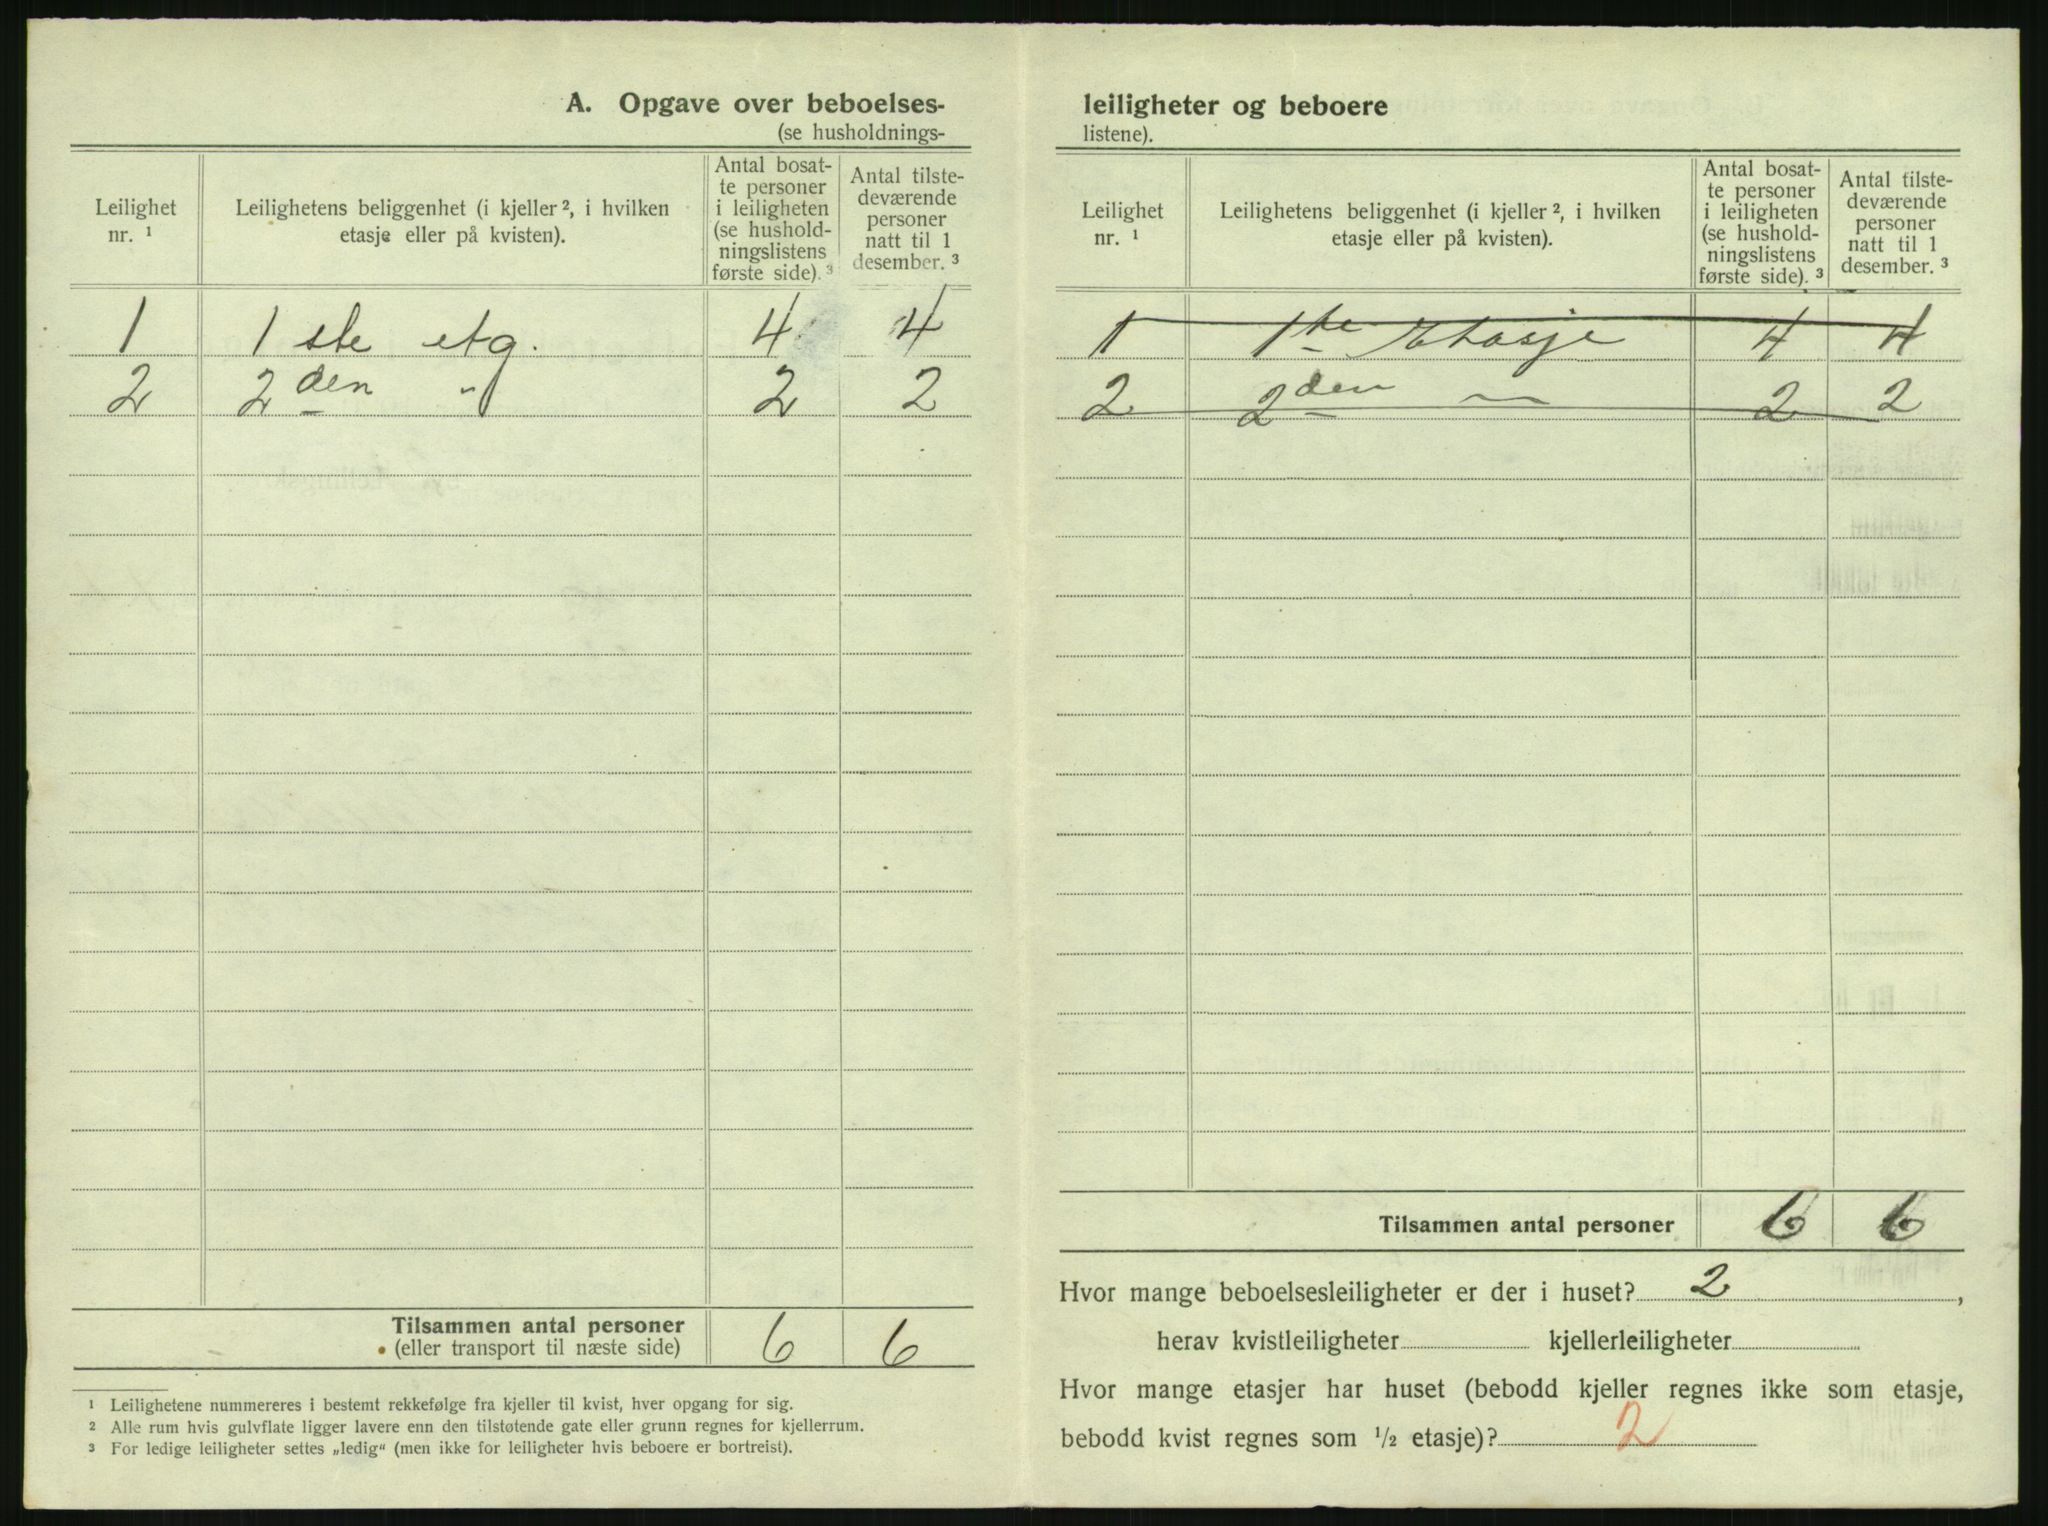 A. Opgave over beboelses-
(se husholdnings-
Leilighet nr. ¹
Leilighetens beliggenhet (i kjeller ², i hvilken etasje eller på kvisten).
Antal bosat-
te personer
i leiligheten
(se hushold-
ningslistens
første side). ³
Antal tilste-
deværende
personer
natt til 1
desember. ³
1 1 ste etg. 4 4
2 2den " 2 2
Tilsammen antal personer 6 6
(eller transport til næste side)
¹ Leilighetene nummereres i bestemt rekkefølge fra kjeller til kvist, hver opgang for sig.
² Alle rum hvis gulvflate ligger lavere enn den tilstøtende gate eller grunn regnes for kjellerrum.
³ For ledige leiligheter settes „ledig“ (men ikke for leiligheter hvis beboere er bortreist).
leiligheter og beboere
listene).
Leilighet nr. ¹
Leilighetens beliggenhet (i kjeller ², i hvilken etasje eller på kvisten).
Antal bosat-
te personer
i leiligheten
(se hushold-
ningslistens
første side). ³
Antal tilste-
deværende
personer
natt til 1
desember. ³
1 1te Etasje 4 4
2 2den — 2 2
Tilsammen antal personer 6 6
Hvor mange beboelsesleiligheter er der i huset? 2,
herav kvistleiligheter kjellerleiligheter
Hvor mange etasjer har huset (bebodd kjeller regnes ikke som etasje,
bebodd kvist regnes som ½ etasje)? 2